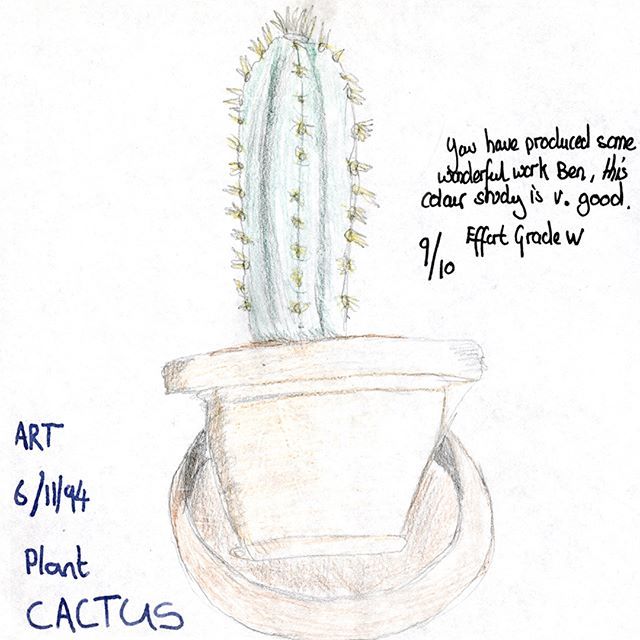 You have produced some
wonderful work Ben, this
colour study is v. good.
9/10 Effort Grade W
ART
6/11/94
Plant
CACTUS